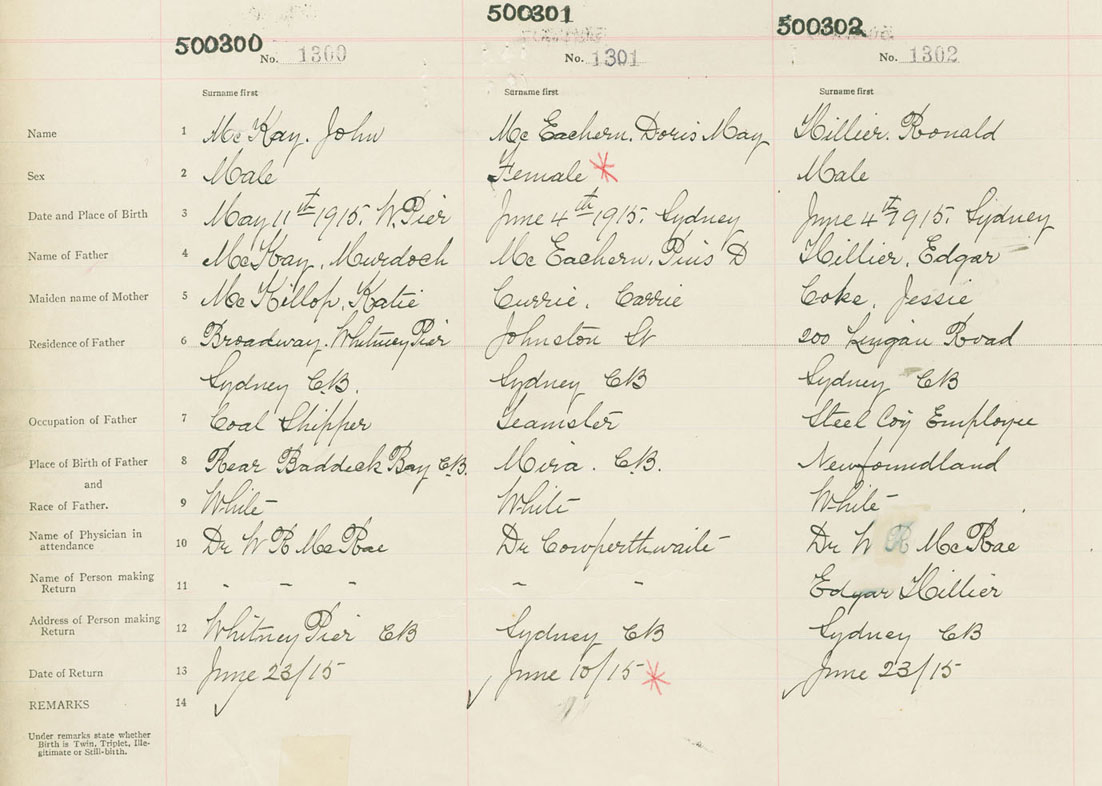 500300 500301 500302
No. 1300 No. 1301 No. 1302
Surname first Surname first Surname first
Name 1 McKay. John Mc Eachern. Doris May Hillier. Ronald
Sex 2 Male Female * Male
Date and Place of Birth 3 May 11th 1915. W. Pier June 4th 1915. Sydney June 4th 1915. Sydney
Name of Father 4 McKay. Murdoch Mc Eachern. Pius D Hillier. Edgar
Maiden name of Mother 5 McKillop. Katie Currie. Carrie Coke. Jessie
Residence of Father 6 Broadway. Whitney Pier Johnston St 200 Lingan Road
Sydney C.B. Sydney CB Sydney CB
Occupation of Father 7 Coal Shipper Teamster Steel Coy Employee
Place of Birth of Father 8 Rear Baddeck Bay C.B. Mira. C.B. Newfoundland
and
Race of Father. 9 White White White
Name of Physician in
attendance 10 Dr W R McRae Dr Cowperthwaite Dr W R McRae
Name of Person making
Return 11 - - - - - Edgar Hillier
Address of Person making
Return 12 Whitney Pier CB Sydney CB Sydney CB
Date of Return 13 June 23/15 June 10/15 * June 23/15
REMARKS 14
Under remarks state whether
Birth is Twin, Triplet, Ille-
gitimate or Still-birth.